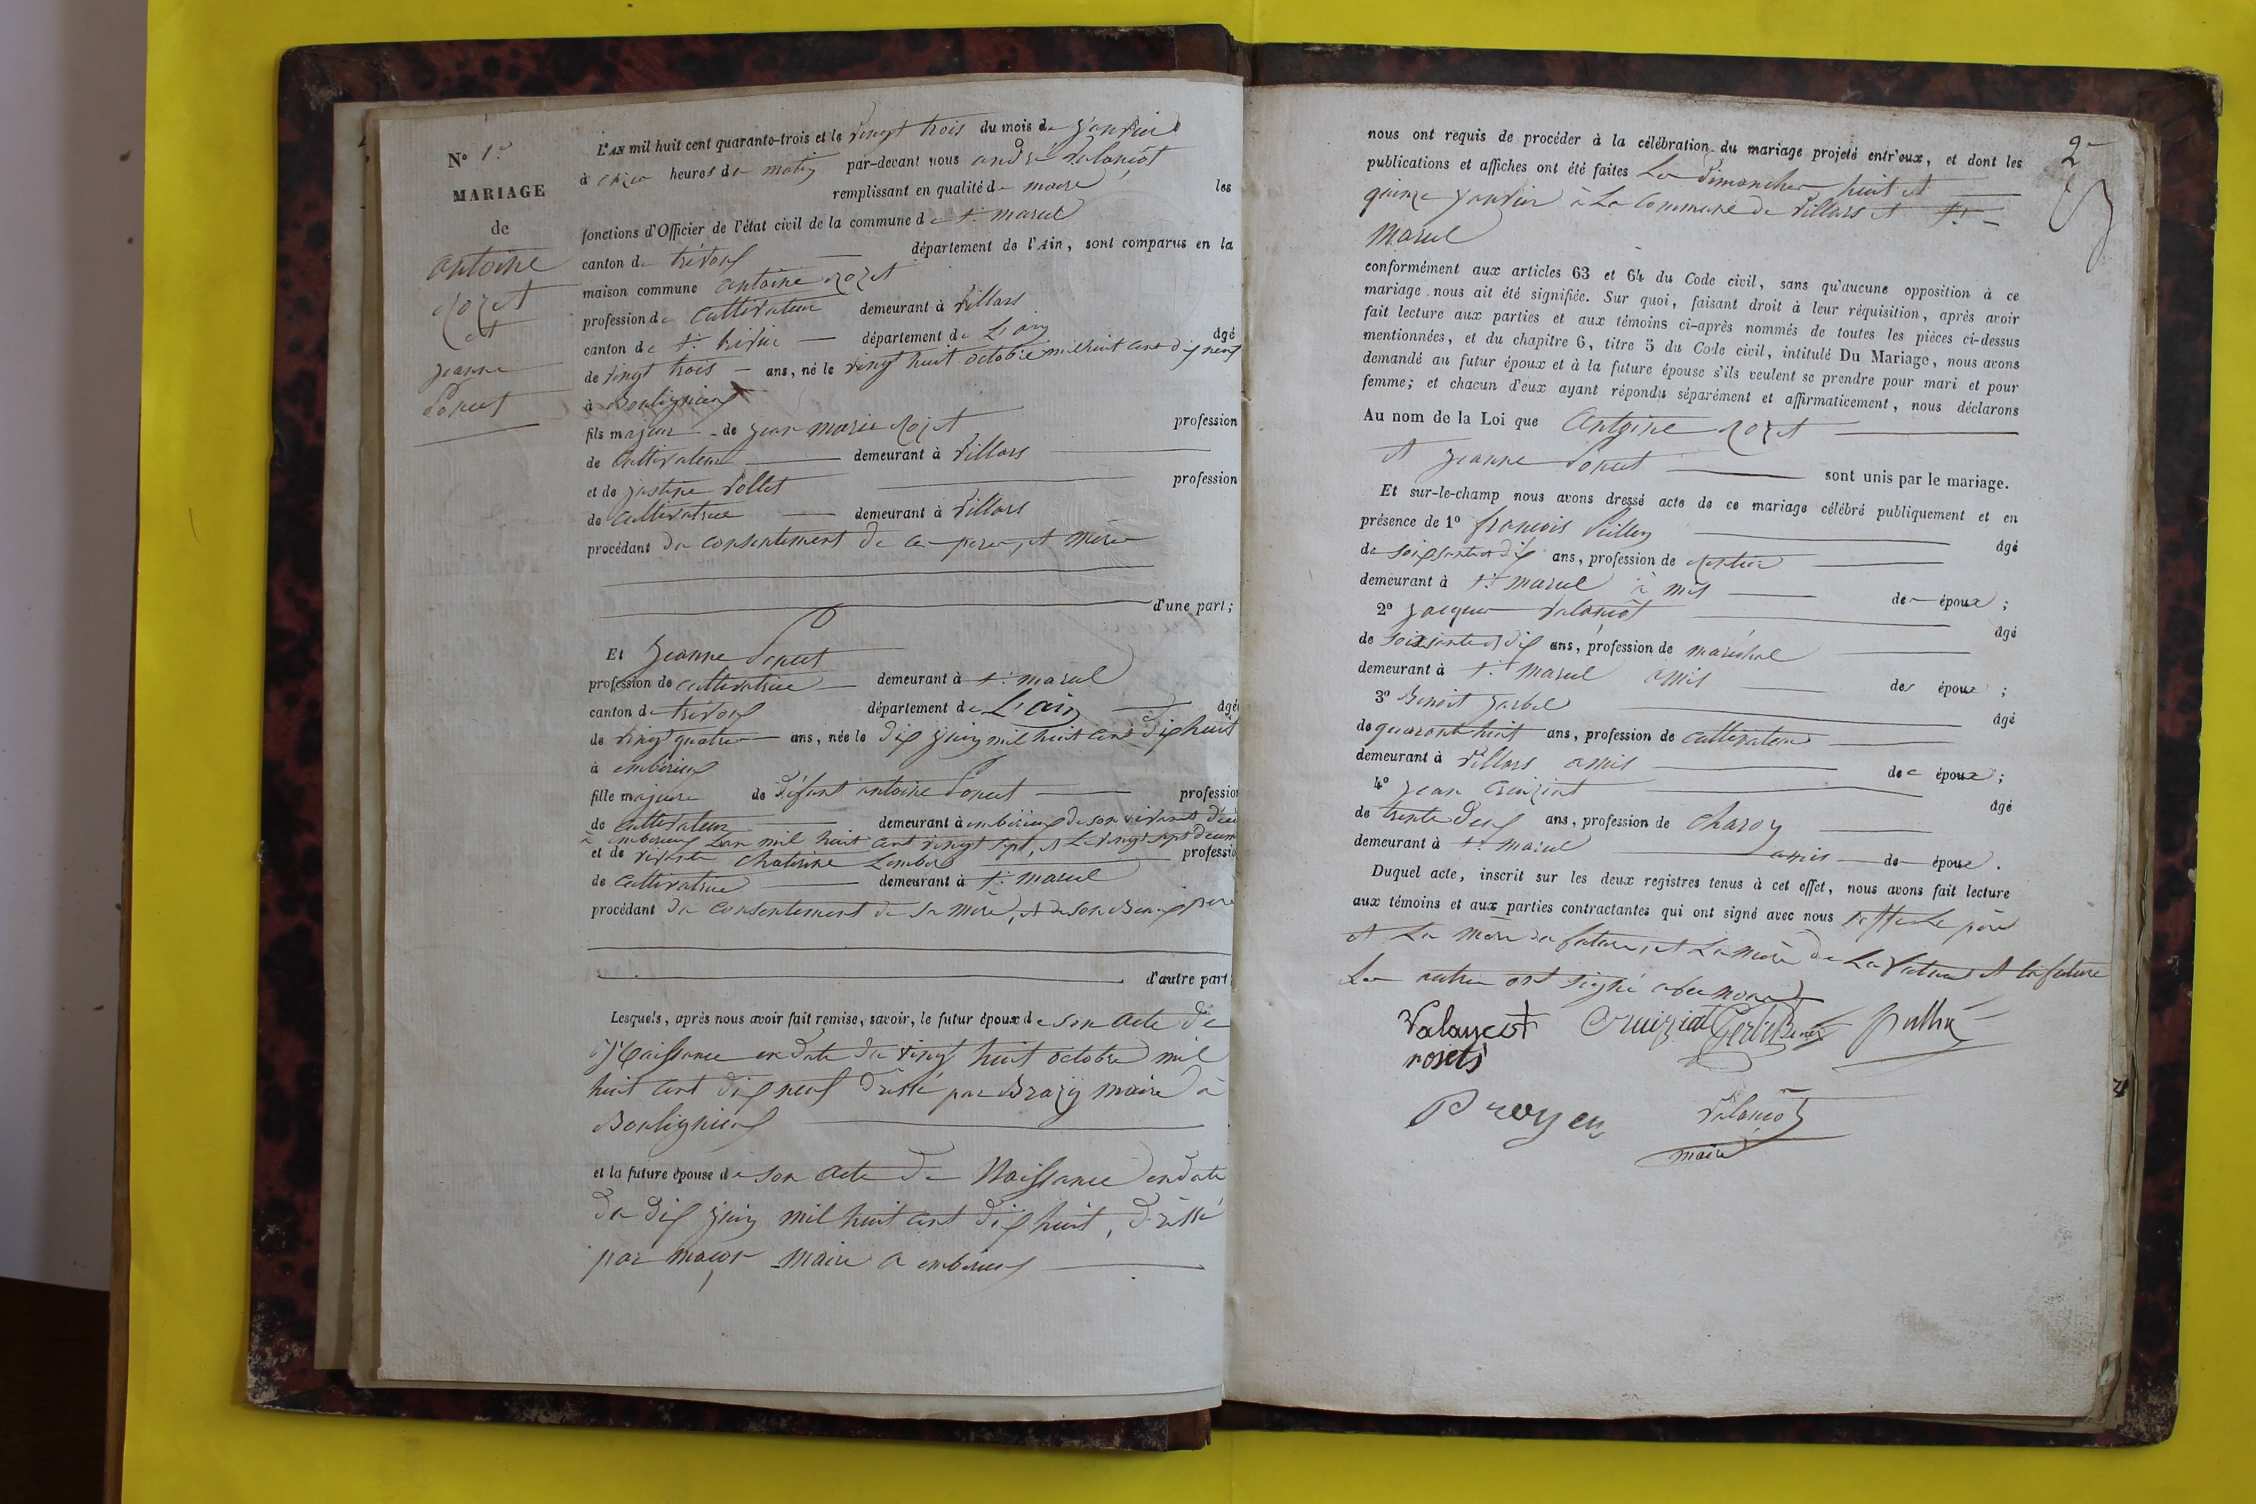 N° 1er
MARIAGE
de
antoine
rozet
et
jeanne
Poncet
L'AN mil huit cent quarante-trois et le vingt trois du mois de janvier
à onze heures de matin par-devant nous andré valansot
remplissant en qualité de maire les
fonctions d'Officier de l'état civil de la commune de St marcel
canton de trévoux département de l'Ain, sont comparus en la
maison commune antoine rozet
profession de cultivateur demeurant à villars
canton de St trivier département de L'ain âgé
de vingt trois ans, né le vingt huit octobre mil huit cent dix neuf
à Bouligneux
fils majeur de jean marie rozet profession
de cultivateur demeurant à villars
et de justine vollet profession
de cultivatrice demeurant à villars
procédant du consentement de ce pere, et mère
d'une part;
Et jeanne Poncet
profession de cultivatrice demeurant à St marcel
canton de trévoux département de L'ain âgée
de vingt quatre ans, née le dix juin mil huit cent dix huit
à amberieux
fille majeure de défunt antoine Poncet profession
de cultivateur demeurant à amberieux de son vivant décé
à amberieux L'an mil huit cent vingt sept, et Le vingt sept decem
et de vivante chaterine Lombard profession
de cultivatrice demeurant à St marcel
procédant du consentement de sa mere, et de son Beau pere
d'autre part
Lesquels, après nous avoir fait remise, savoir, le futur époux de son acte de
Naissance en date du vingt huit octobre mil
huit cent dix neuf dressé par Brazy maire à
Bouligneux
et la future épouse de son acte de Naissance en date
du dix juin mil huit cent dix huit, dressé
par maire a amberieux
nous ont requis de procéder à la célébration du mariage projeté entr'eux, et dont les
publications et affiches ont été faites Les dimanches huit et
quinze janvier à La commune de villars et St
Marcel
conformément aux articles 63 et 64 du Code civil, sans qu'aucune opposition à ce
mariage nous ait été signifiée. Sur quoi, faisant droit à leur réquisition, après avoir
fait lecture aux parties et aux témoins ci-après nommés de toutes les pièces ci-dessus
mentionnées, et du chapitre 6, titre 5 du Code civil, intitulé Du Mariage, nous avons
demandé au futur époux et à la future épouse s'ils veulent se prendre pour mari et pour
femme; et chacun d'eux ayant répondu séparément et affirmativement, nous déclarons
Au nom de la Loi que Antoine rozet
et jeanne Poncet sont unis par le mariage.
Et sur-le-champ nous avons dressé acte de ce mariage célébré publiquement et en
présence de 1° francois âgé
de soixante et dix ans, profession de rentier
demeurant à St marcel à mis de époux ;
2° jacques valansot âgé
de soixante et dix ans, profession de maréchal
demeurant à St marcel amis des époux ;
3° Benoit jarbel âgé
de quarante huit ans, profession de cultivateur
demeurant à villars amis de époux ;
4° jean cruiziat âgé
de trente deux ans, profession de charon
demeurant à St marcel amis de époux.
Duquel acte, inscrit sur les deux registres tenus à cet effet, nous avons fait lecture
aux témoins et aux parties contractantes qui ont signé avec nous Le père
et La mère du futur, et La mère de La future et la future
Les autres ont signé avec nous
Valançot Cruiziat
rozets
valansot
maire
2